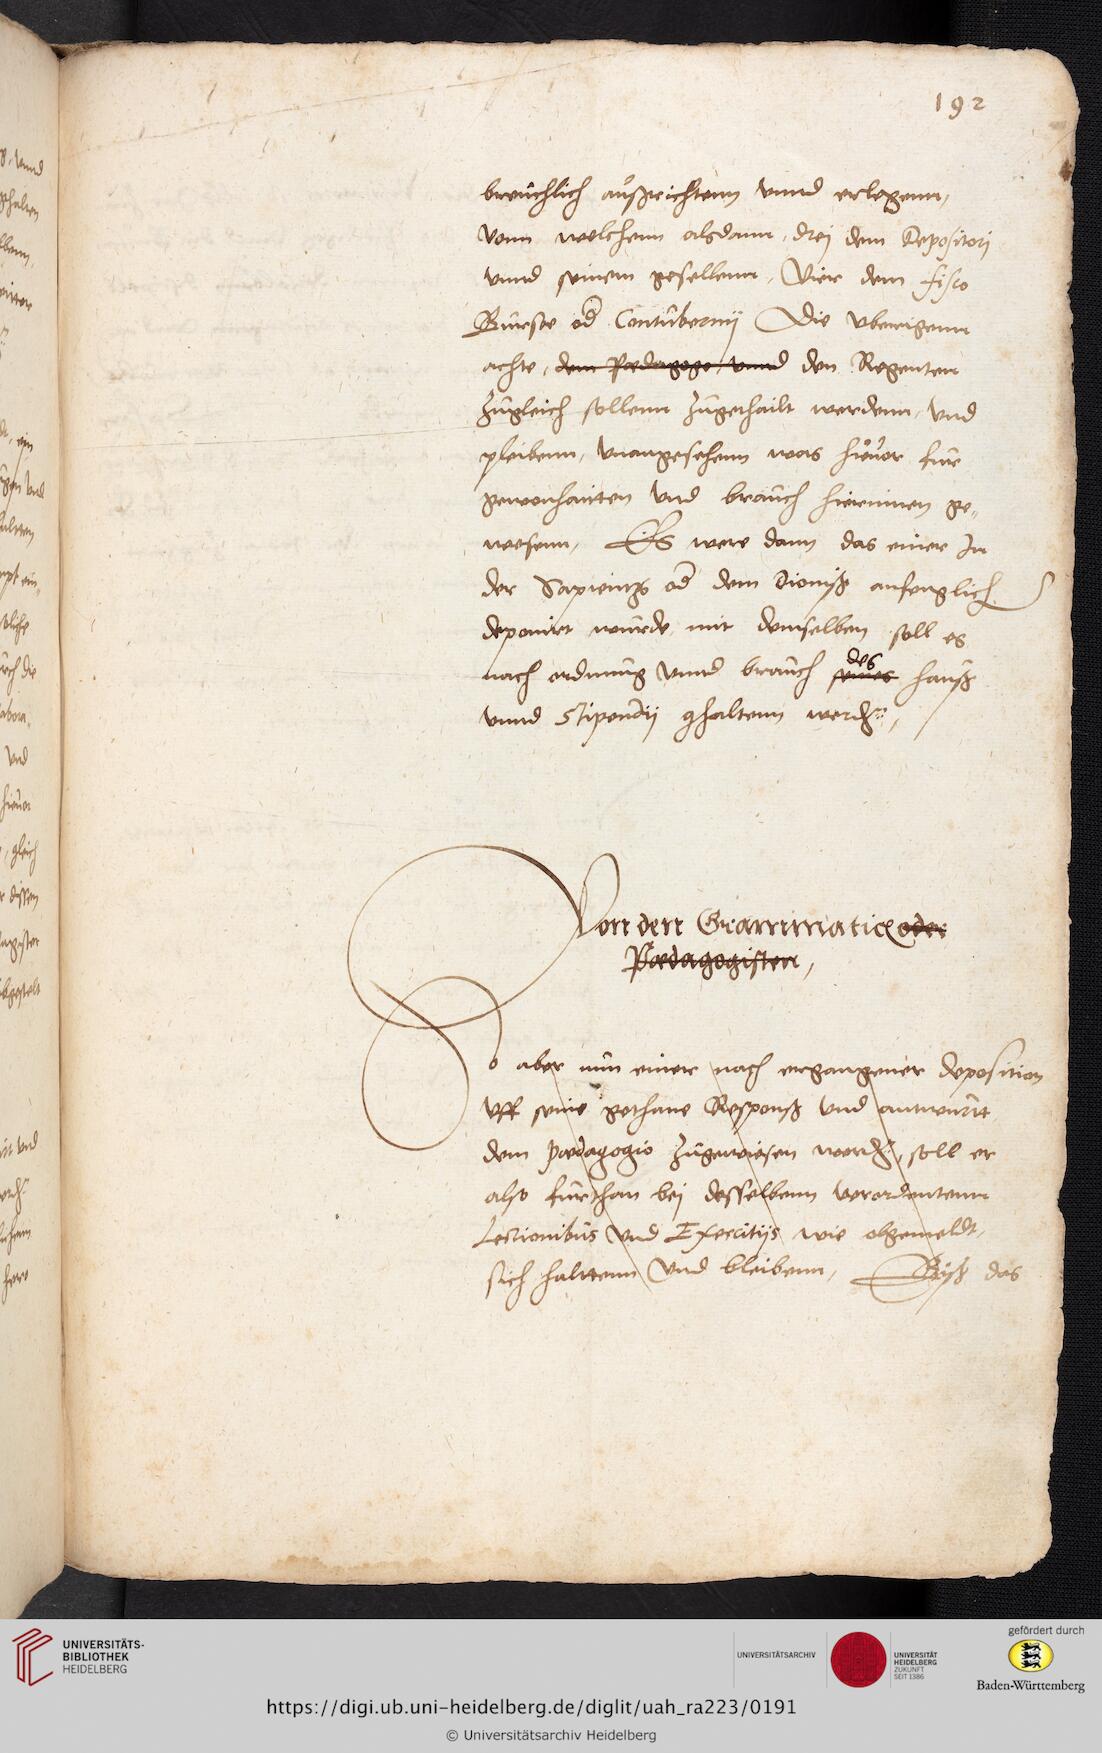 192
breuchlich außrichtenn vnnd erlegenn,
Vonn welchenn alsdann, drej dem Depositori
vnnd seinem gesellenn, Vier dem fisco
Bursae od Contubernij Die vberigenn
achte, dem Paedagogo vnnd den Regenten
zugleich sollenn zugethailt werdenn, vnd
pleibenn, vnangesehenn was hieuor fur
gewonhaitten vnd brauch hierinnen ge-
wesenn, Es were dann das einer In
der Sapientz od dem Dionisß anfenglich
deponirt wurde, mit demselben soll es
nach ordnung vnnd brauch seines des hauß
vnnd Stipendij ghaltenn werd,
Von denn Grammaticę oder
Paedagogisten,
So aber nun einer nach ergangener deposition
vff seine gethane Responß vnd antwurtt
dem paedagogio zugewiesen werd, soll er
also furthan bej desselbenn verordentenn
Lectionibus vnd Exercitijs wie obgemeldt,
sich halttenn vnd bleibenn, Biß das
UNIVERSITÄTS-
BIBLIOTHEK
HEIDELBERG
UNIVERSITÄTSARCHIV
UNIVERSITÄT
HEIDELBERG
ZUKUNFT
SEIT 1386
gefördert durch
Baden-Württemberg
https://digi.ub.uni-heidelberg.de/diglit/uah_ra223/0191
© Universitätsarchiv Heidelberg